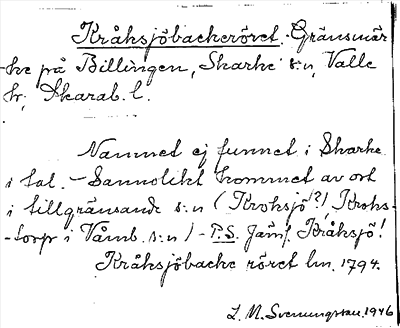 Kråksjöbackeröret. Gränsmär
-ke på Billingen, Skarke s:n, Valle
hr, Skarab. l.
Namnet ej funnet i Skarke
i tal. - Sannolikt kommet av ort
i tillgränsande s:n (Kroksjö?, Kroks-
-torp i Våmb. s:n) - P.S. Jämf. Kråksjö!
Kråksjöbacke röret lm. 1794.
L. M. Svenungsson. 1946